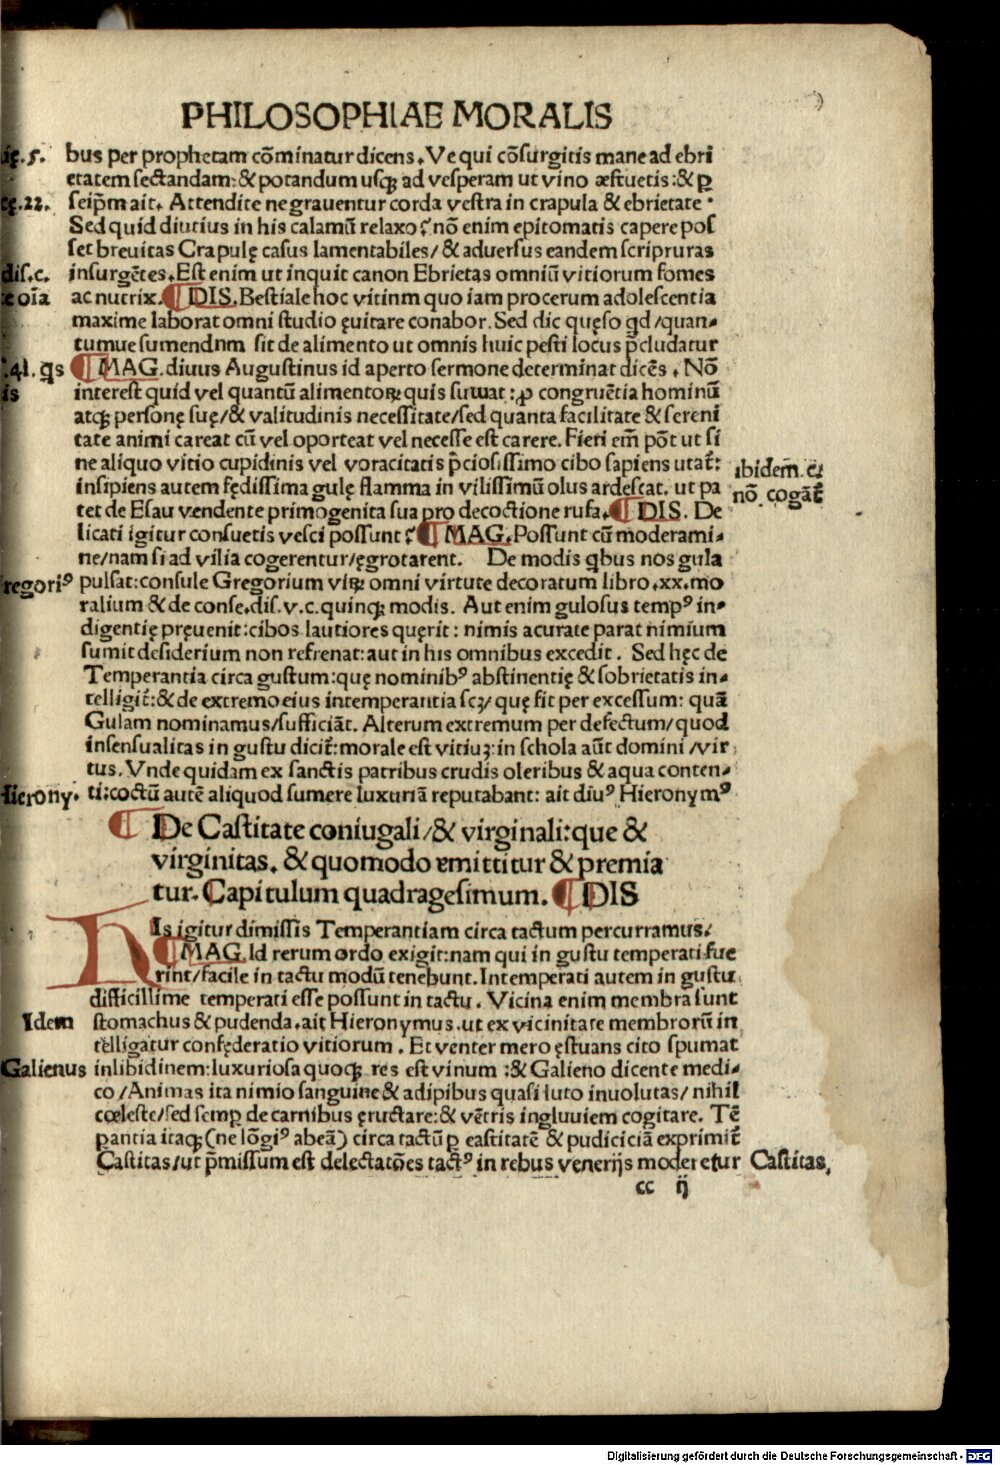 PHILOSOPHIAE MORALIS
bus per prophetam cōminatur dicens. Ve qui cōsurgitis mane ad ebri
etatem sectandam: & potandum usqꝫ ad vesperam ut vino æstuetis: & ꝑ
seip̄m ait. Attendite ne graventur corda vestra in crapula & ebrietate.
Sed quid diutius in his calamū relaxo? nō enim epitomatis capere pos
set brevitas Crapulę casus lamentabiles/ & adversus eandem scripturas
dis. c. insurgētes. Est enim ut inquit canon Ebrietas omniū vitiorum fomes
oīa ac nutrix. ¶ DIS. Bestiale hoc vitinm quo iam procerum adolescentia
maxime laborat omni studio ęvitare conabor. Sed dic quęso qd/quan-
tumue sumendnm sit de alimento ut omnis huic pesti locus p̄cludatur
.41. qs ¶ MAG. divus Augustinus id aperto sermone determinat dicēs. Nō
is interest quid vel quantū alimentoꝝ quis sumat: ꝓ congruētia hominū
atqꝫ personę suę/ & valitudinis necessitate/ sed quanta facilitate & sereni
tate animi careat cū vel oporteat vel necesse est carere. Fieri em̄ pōt ut si
ne aliquo vitio cupidinis vel voracitatis p̄ciosissimo cibo sapiens utat᷑:
insipiens autem fędissima gulę flamma in vilissimū olus ardescat. ut pa
ibidem. c̄
nō. cogāt᷑
tet de Esau vendente primogenita sua pro decoctione rufa. ¶ DIS. De
licati igitur consuetis vesci possunt? ¶ MAG. Possunt cū moderami-
ne/ nam si ad vilia cogerentur/ ęgrotarent. De modis qbus nos gula
regoriꝰ pulsat: consule Gregorium virꝫ omni virtute decoratum libro. xx. mo
ralium & de conse. dis. v. c. quinqꝫ modis. Aut enim gulosus tempꝰ in-
digentię pręvenit: cibos lautiores quęrit: nimis acurate parat nimium
sumit desiderium non refrenat: aut in his omnibus excedit. Sed hęc de
Temperantia circa gustum: quę nominibꝰ abstinentię & sobrietatis in-
telligit᷑: & de extremo eius intemperantia scꝫ/ quę fit per excessum: quā
Gulam nominamus/ sufficiāt. Alterum extremum per defectum/ quod
insensualitas in gustu dicit᷑: morale est vitiuꝫ: in schola aūt domini/ vir
tus. Vnde quidam ex sanctis patribus crudis oleribus & aqua conten-
Hierony. ti: coctū autē aliquod sumere luxuriā reputabant: ait divꝰ Hieronymꝰ
¶ De Castitate coniugali/ & virginali: que &
virginitas. & quomodo emittitur & premia
tur. Capitulum quadragesimum. ¶ DIS
HIs igitur dimissis Temperantiam circa tactum percurramus.
¶ MAG. Id rerum ordo exigit: nam qui in gustu temperati fue
rint/ facile in tactu modū tenebunt. Intemperati autem in gustu
difficillime temperati esse possunt in tactu. Vicina enim membra sunt
Idem stomachus & pudenda. ait Hieronymus. ut ex vicinitate membrorū in
telligatur confęderatio vitiorum. Et venter mero ęstuans cito spumat
Galienus in libidinem: luxuriosa quoqꝫ res est vinum: & Galieno dicente medi-
co/ Animas ita nimio sanguine & adipibus quasi luto involutas/ nihil
cœleste/ sed semp̄ de carnibus ęructare: & vētris ingluviem cogitare. Tē
perantia itaqꝫ (ne lōgiꝰ abeā) circa tactū ꝑ castitatē & pudiciciā exprimit᷑
Castitas/ ut p̄missum est delectatōes tactꝰ in rebus venerijs moderetur Castitas.
cc ij
Digitalisierung gefördert durch die Deutsche Forschungsgemeinschaft - DFG